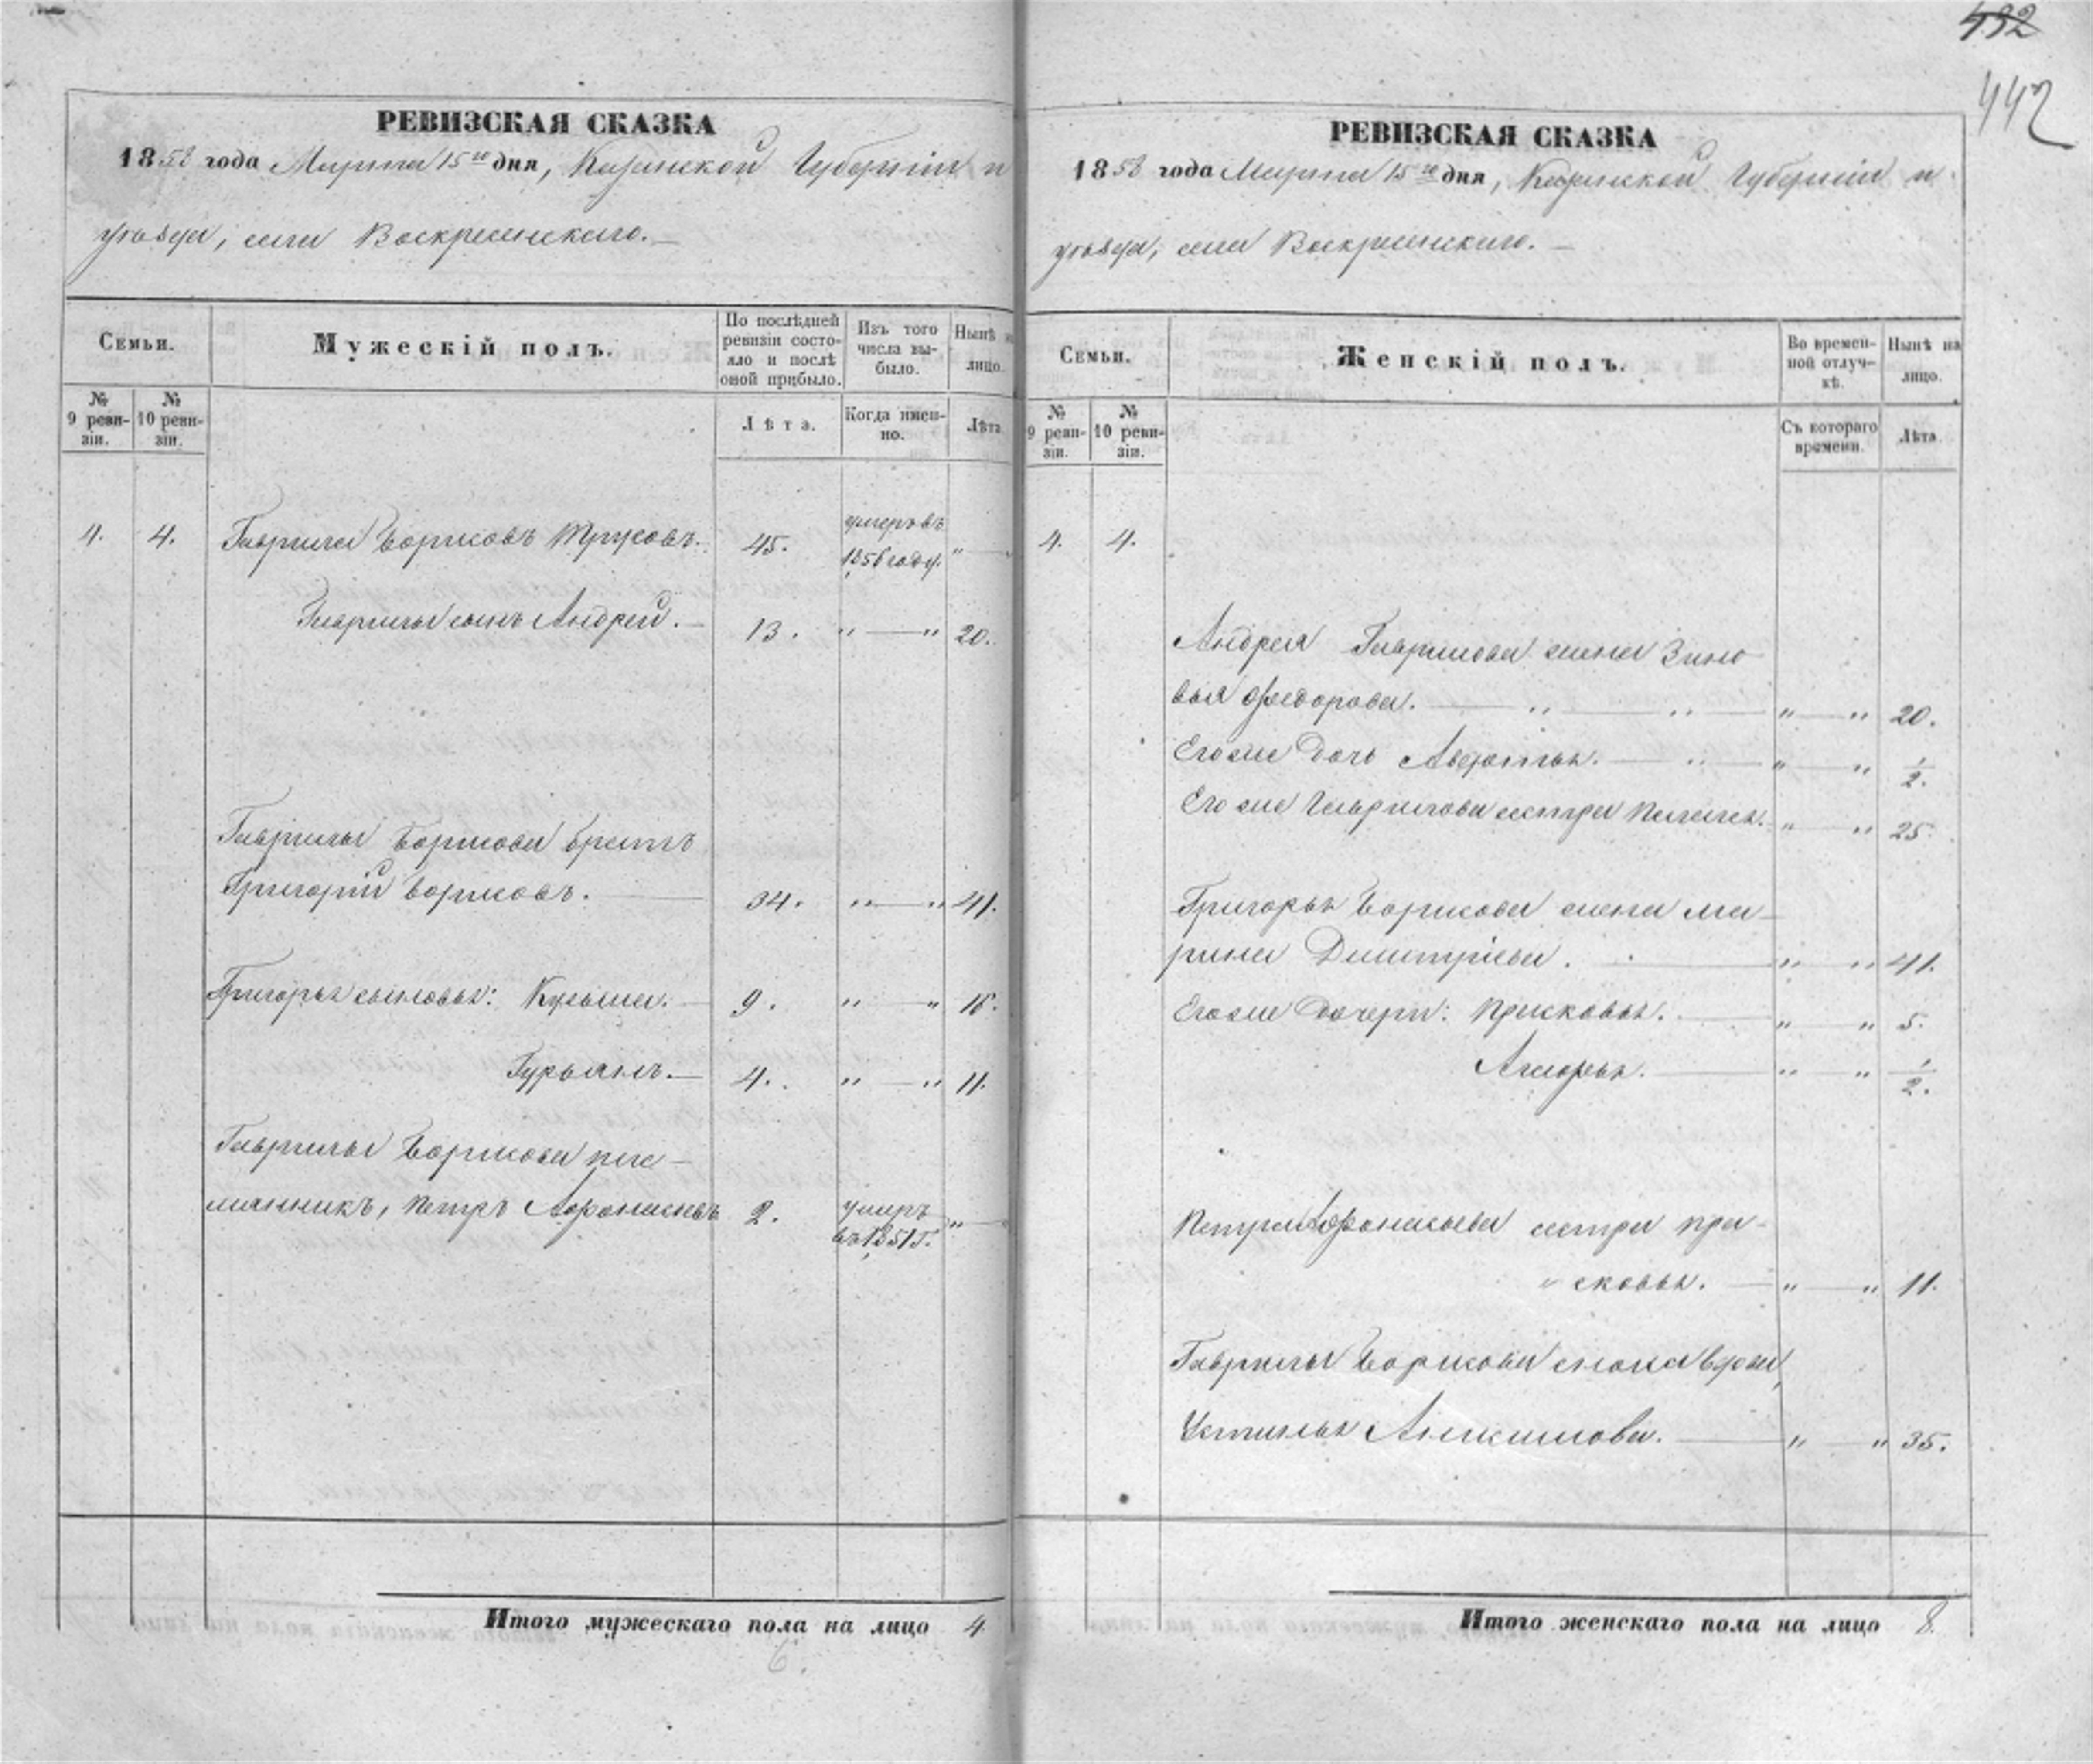 432
442
РЕВИЗСКАЯ СКАЗКА
1858 года Марта 15го дня, Казанской Губерніи и
уѣзда, села Воскресенскаго.—
Семьи.
Мужескій полъ.
По послѣдней ревизіи состояло и послѣ оной прибыло.
Изъ того числа выбыло.
Нынѣ на лицо.
№ 9 ревизіи.
№ 10 ревизіи.
Лѣта.
Когда именно.
Лѣта
4. 4. Гаврила Борисовъ 45. умеръ въ 1856 году. " — "
Гаврилы сынъ Андрей. — 13. " — " 20.
Гаврилы Борисова братъ
Григорій Борисовъ. — 34. " — " 41.
Григорья сыновья: Кузьма. — 9. " — " 16.
Гурьянъ. — 4. " — " 11.
Гаврилы Борисова пле-
мянникъ, Петръ Афонасьевъ 2. умеръ въ 1851 г. " — "
Итого мужескаго пола на лицо 4
6.
РЕВИЗСКАЯ СКАЗКА
1858 года Марта 15го дня, Казанской Губерніи и
уѣзда, села Воскресенскаго. —
Семьи.
Женскій полъ.
Во временной отлучкѣ.
Нынѣ на лицо.
№ 9 ревизіи.
№ 10 ревизіи.
Съ котораго времени.
Лѣта
4. 4.
Андрея Гаврилова жена Зино-
вья Федорова. — " — " — " — " 20.
Егоже дочь Авдотья. — " — " — " 1/2.
Егоже Гаврилова сестра Пелагея. " — " 25.
Григорья Борисова жена Ма-
рина Дмитріева. — " — " 41.
Егоже дочери: Присковья. — " — " 5.
— " — " 1/2.
Петра Афонасьева сестра Пра-
" сковья. — " — " 11.
Гаврилы Борисова сноха вдова,
Устинья — " — " 35.
Итого женскаго пола на лицо 8.